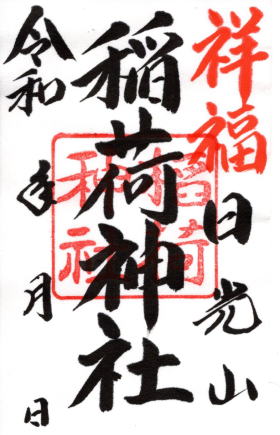 祥福
日光山
稲荷神社
令和 年 月 日
稲荷
神社